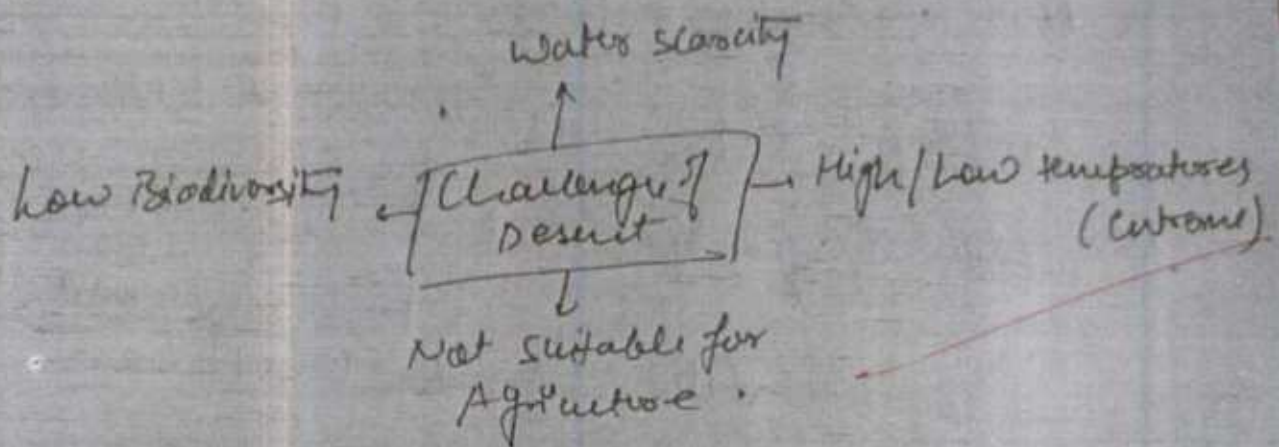 Water scarcity
Low Biodiversity
Challenges of
Desert
High/Low temperatures
(Extreme)
Not suitable for
Agriculture.